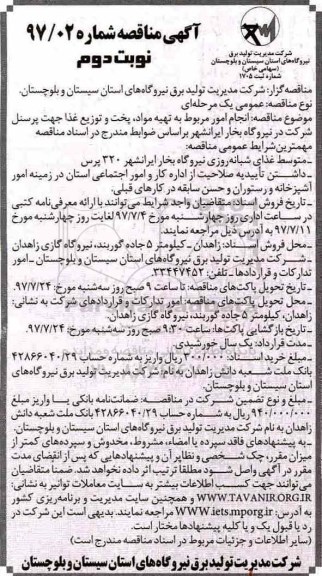 شرکت مدیریت تولید برق
نیروگاه‌های استان سیستان و بلوچستان
(سهامی خاص)
شماره ثبت ۱۷۰۵
آگهی مناقصه شماره ۹۷/۰۲
نوبت دوم
مناقصه‌گزار: شرکت مدیریت تولید برق نیروگاه‌های استان سیستان و بلوچستان.
نوع مناقصه: عمومی یک مرحله‌ای
موضوع مناقصه: انجام امور مربوط به تهیه مواد، پخت و توزیع غذا جهت پرسنل
شرکت در نیروگاه بخار ایرانشهر براساس ضوابط مندرج در اسناد مناقصه
مهمترین شرایط عمومی مناقصه:
ـ متوسط غذای شبانه‌روزی نیروگاه بخار ایرانشهر ۳۲۰ پرس
ـ داشتن تأییدیه صلاحیت از اداره کار و امور اجتماعی استان در زمینه امور
آشپزخانه و رستوران و حسن سابقه در کارهای قبلی.
ـ تاریخ فروش اسناد: متقاضیان واجد شرایط می‌توانند با ارائه معرفی‌نامه کتبی
در ساعات اداری روز چهارشنبه مورخ ۹۷/۷/۴ لغایت روز چهارشنبه مورخ
۹۷/۷/۱۱ به آدرس ذیل مراجعه نمایند.
ـ محل فروش اسناد: زاهدان ـ کیلومتر ۵ جاده گوربند، نیروگاه گازی زاهدان
ـ شرکت مدیریت تولید برق نیروگاه‌های استان سیستان و بلوچستان ـ امور
تدارکات و قراردادها ـ تلفن: ۳۳۴۴۷۴۵۲
ـ تاریخ تحویل پاکت‌های مناقصه: تا ساعت ۹ صبح روز سه‌شنبه مورخ: ۹۷/۷/۲۴.
ـ محل تحویل پاکت‌های مناقصه: امور تدارکات و قراردادهای شرکت به نشانی:
زاهدان، کیلومتر ۵ جاده گوربند، نیروگاه گازی زاهدان.
ـ تاریخ بازگشایی پاکت‌ها: ساعت ۹:۳۰ صبح روز سه‌شنبه مورخ: ۹۷/۷/۲۴.
ـ مدت قرارداد: یک سال خورشیدی.
ـ مبلغ خرید اسناد: ۳۰۰/۰۰۰ ریال واریز به شماره حساب ۴۲۸۶۶۰۴۰/۲۹
بانک ملت شعبه دانش زاهدان به نام شرکت مدیریت تولید برق نیروگاه‌های
استان سیستان و بلوچستان.
ـ مبلغ و نوع تضمین شرکت در مناقصه: ضمانت‌نامه بانکی یا واریز مبلغ
۹۴۰/۰۰۰/۰۰۰ ریال به شماره حساب ۴۲۸۶۶۰۴۰/۲۹ بانک ملت شعبه دانش
زاهدان به نام شرکت مدیریت تولید برق نیروگاه‌های استان سیستان و بلوچستان.
ـ به پیشنهادهای فاقد سپرده یا امضاء، مشروط، مخدوش و سپرده‌های کمتر از
میزان مقرر، چک شخصی و نظایر آن و پیشنهادهایی که پس از انقضای مدت
مقرر در آگهی واصل شود مطلقا ترتیب اثر داده نخواهد شد. ضمنا متقاضیان
می‌توانند جهت کسب اطلاعات بیشتر به سایت معاملات توانیر به نشانی:
WWW.TAVANIR.ORG.IR و همچنین سایت مدیریت و برنامه‌ریزی کشور
به آدرس: www.iets.mporg.ir مراجعه نمایند. بدیهی است این شرکت در
رد یا قبول یک و یا کلیه پیشنهادها مختار است.
(سایر اطلاعات و جزئیات مربوط در اسناد مناقصه مندرج است)
شرکت مدیریت تولید برق نیروگاه‌های استان سیستان و بلوچستان